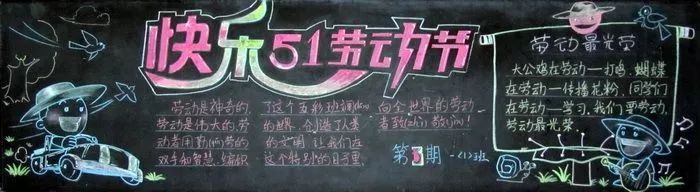 快乐51劳动节
劳动是神奇的,
劳动是伟大的,劳
动者用勤(qin)劳的
双手和智慧,编织
了这个五彩班斓(lan)
的世界,创造了人类
的文明 让我们在
这个特别的日子里,
向全世界的劳动
者致(zhi)敬(jing)!
第3期 一<12>班
劳动最光荣
大公鸡在劳动—打鸣,蝴蝶
在劳动—传播花粉,同学们
在劳动—学习,我们要劳动,
劳动最光荣.